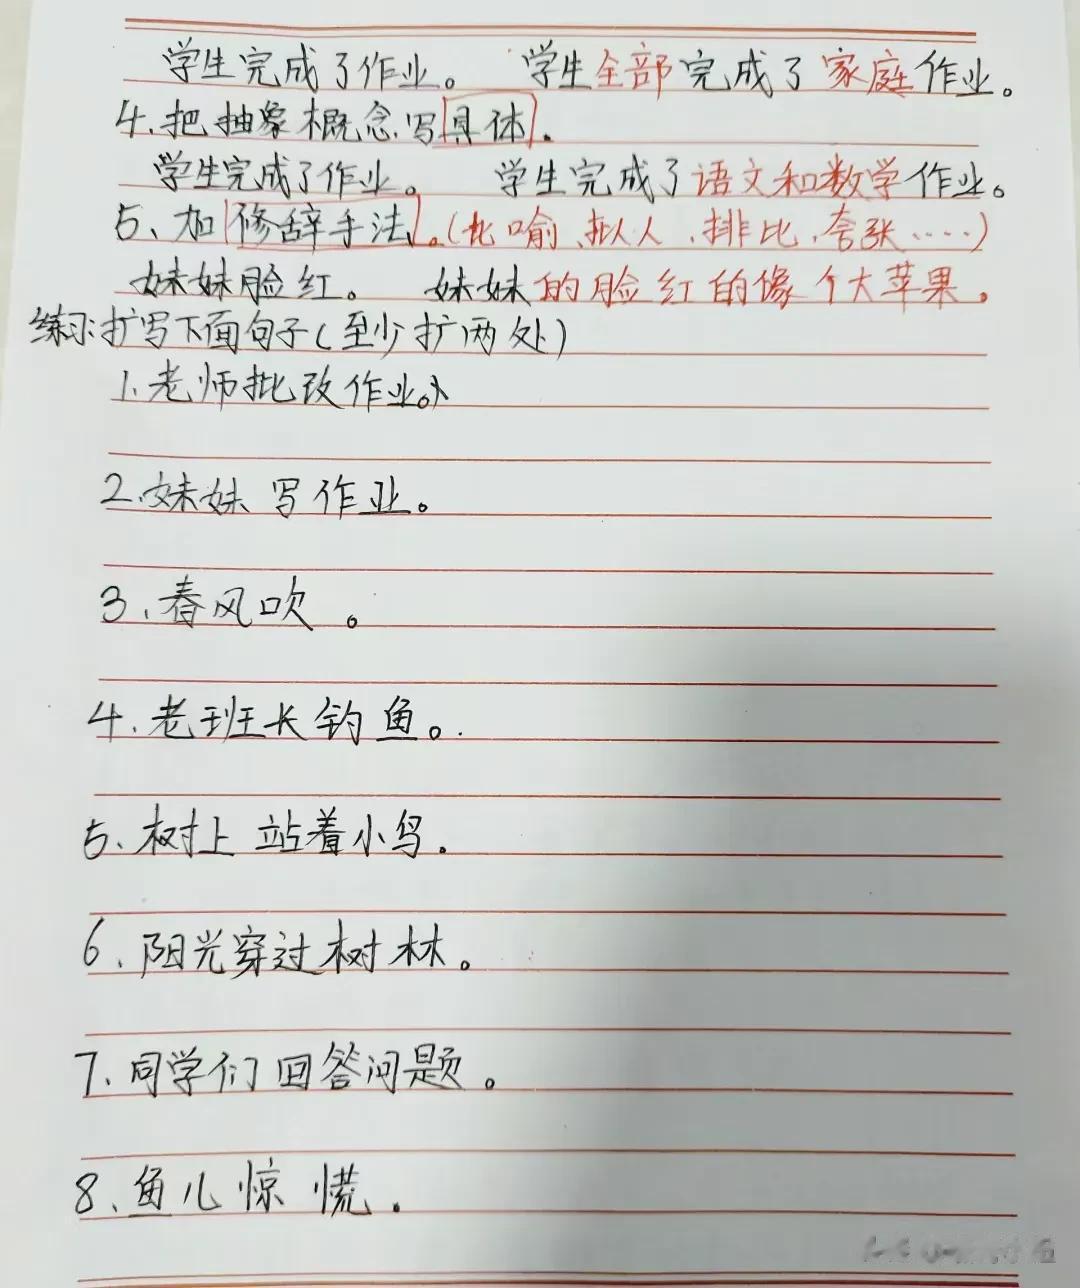 学生完成了作业。 学生全部完成了家庭作业。
4.把抽象概念写具体.
学生完成了作业。 学生完成了语文和数学作业。
5、加修辞手法。(比喻、拟人、排比、夸张……)
妹妹脸红。 妹妹的脸红的像个大苹果。
练习:扩写下面句子(至少扩两处)
1.老师批改作业。
2.妹妹写作业。
3.春风吹。
4.老班长钓鱼。
5、树上站着小鸟.
6.阳光穿过树林。
7.同学们回答问题。
8、鱼儿惊慌.